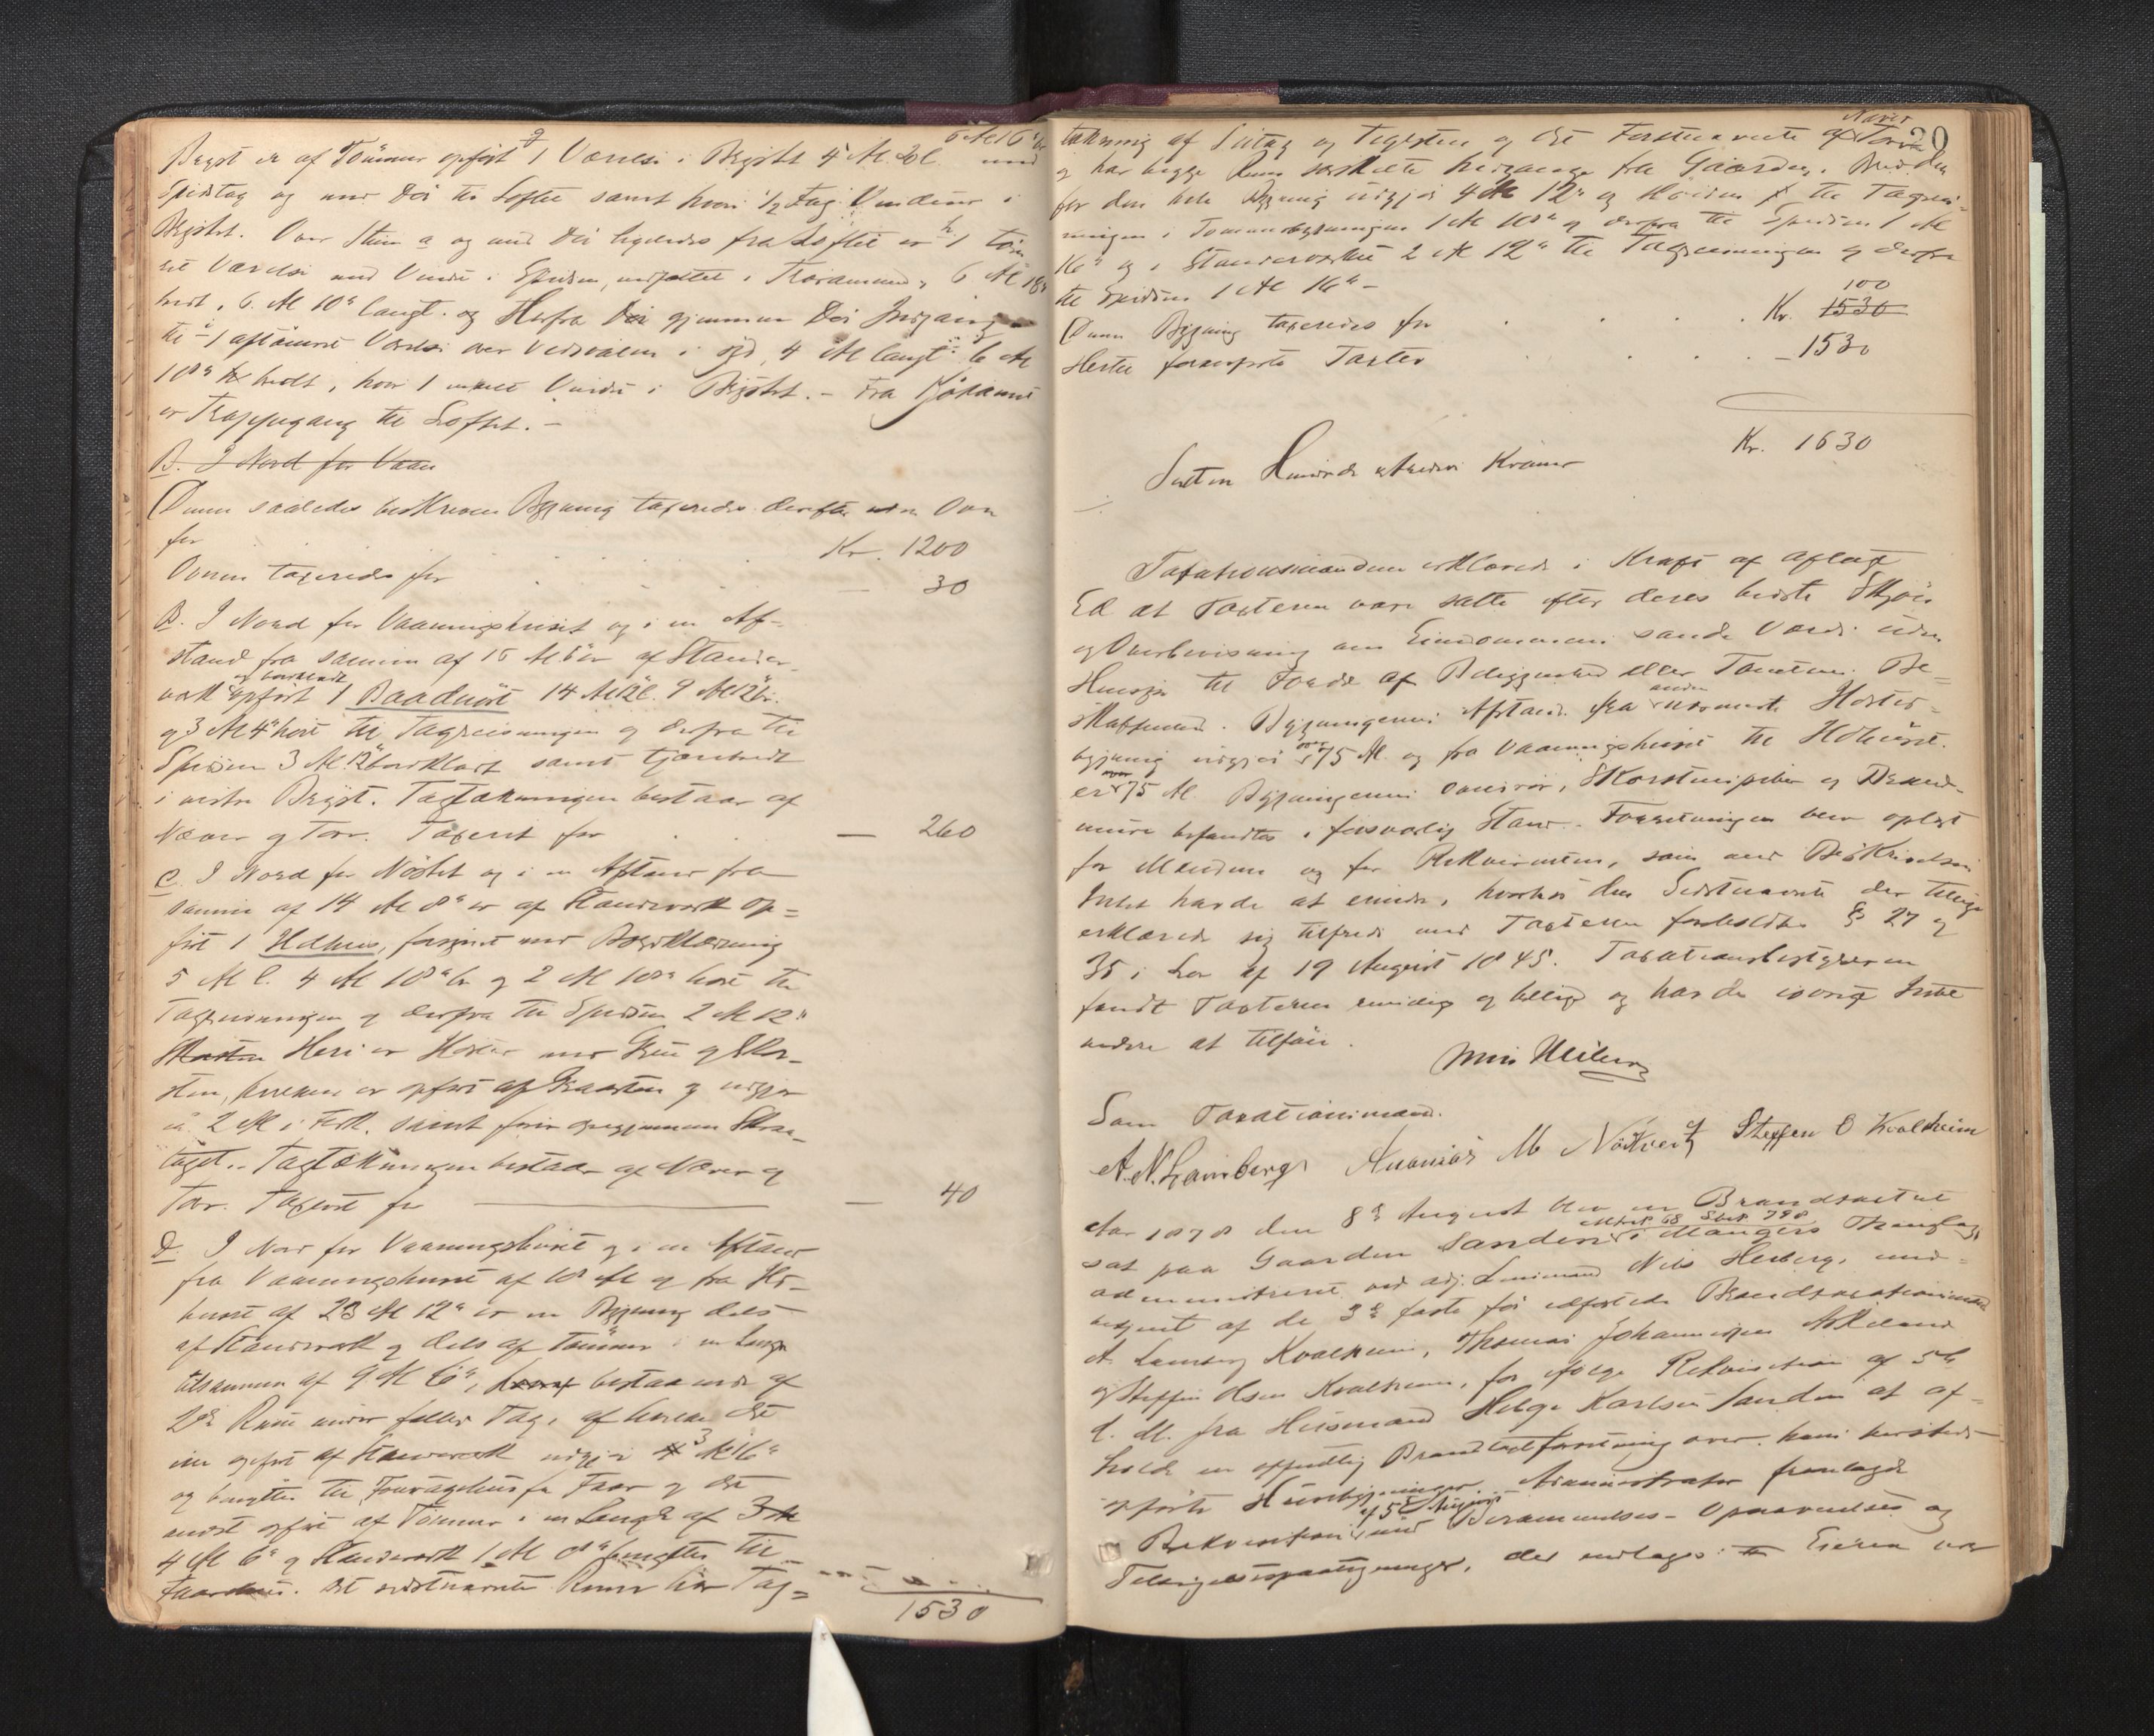 Bryst er af Tømmer opført 1 Værelse i Bryst 4 Al. 20 l. 6 Al 6" br. med
Spidstag og med Dør til Loftet samt hvori 1/2 Fag Vinduer i
Brystet. Over Stuen a og med Dør ligeledes fra Loftet er 1 tøm
ret Værelse med Vindu i Spidsen, 6 Al 18"
bredt, 6 Al 10" langt. og Herfra Dør gjennem Dør Indgang
til 1 aftømret Værelse over i Syd, 4 Al langt 6 Al
18" bredt, hvor 1 enkelt Vindu i Brystet. - Fra
er Trappegang til Loftet. -
B. I Nord for Vaan
Denne saaledes beskreven Bygning taxeredes derefter uden Ovn
for Kr. 1200
Ovnen taxeredes for — 30
B. I Nord for Vaaningshuset og i en Af=
stand fra samme af 15 Al 6" er af Stander-
værk opført 1 Baadnøst 14 Al 12" l. 9 Al 12" br.
og 3 Al 4" høit til Tagreisningen og derfra til
Spidsen 3 Al 12" bordklædt samt
i vestre Bryst. Tagtækningen bestaar af
Næver og Torv. Taxeret for — 260
C. I Nord for Nøstet og i en Afstand fra
samme af 14 Al 8" er af Standerværk op=
ført 1 Ildhus, forsynet med Bordklædning
5 Al l. 4 Al 18" br. og 2 Al 18" høit til
Tagreisningen og derfra til Spidsen 2 Al 12"
Skorsten Heri er med Grue og Skor-
sten, hvilken er opført af Graasten og udgjør
ca. 2 Al i Firk. samt fører igjennem Skraa-
taget. - Tagtækningen bestaar af Næver og
Torv. Taxeret for — 40
D. I Nord for Vaaningshuset og i en Afstand
fra Vaaningshuset af 18 Al og fra Ild-
huset af 23 Al 12" er en Bygning dels
af Standerværk og dels af Tømmer i en Længde
tilsammen af 9 Al 6", bestaaende af
2de Rum under fælles Tag, af hvilke det
ene opført af Standerværk udgjør 3 Al 16"
og benyttes til Fouragehus for Faar og det
andet opført af Tømmer i en Længde af
4 Al 6" og Standerværk 1 Al 8" benyttes til
Faarehus. Det sidstnævnte Rum har Tag=
1530
Næver
tækning af Sutag og Teglsten og det Førstnævnte af Torv 20
og har begge Rum særskilte Indgange fra Gaarden. Bredden
for den hele Bygning udgjør 4 Al 12" og Høiden til Tagreis-
ningen i Tømmerbygningen 1 Al 18" og derfra til Spidsen 1 Al
16" og i Standerværket 2 Al 12" til Tagreisningen og derfra
til Spidsen 1 Al 16" -
Denne Bygning taxeredes for Kr. 1530 100
Hertil foranførte Taxter — 1530
Kr. 1630
Sexten Hundrede og tredive Kroner
Taxationsmændene erklærede i Kraft af aflagt
Ed at Taxterne vare satte efter deres bedste Skjøn
og Overbevisning om Eiendommens sande Værdi uden
Hensyn til Fordel af Beliggenhed eller Tomtens Be-
skaffenhed. Bygningernes Afstand fra anden nærmeste
bygning udgjør over 75 Al. og fra Vaaningshuset til Ildhuset
er over 75 Al. Bygningernes Ovnsrør, Skorstenspiber og Brand-
mure befandtes i forsvarlig Stand. Forretningen blev oplæst
for Mændene og for Rekvirenten, som ved Beskrivelsen
Intet havde at erindre, hvorhos den Sidstnævnte der tillige
erklærede sig tilfreds med Taxterne forholdtes § 27 og
35 i Lov af 19 August 1845. Taxationsbestyreren
fandt Taxterne rimelige og billige og havde iøvrigt Intet
videre at tilføie.
Som Taxationsmænd.
A. N. Lamberg Ananias M Steffen O Kvalheim
Aar 1878 den 8de August blev en Brandtaxt
sat paa Gaarden Sanden Matr. No 68 Skt. 798 i Mangers Thinglag,
administreret ved adj. Lensmand Nils Heiberg, med
af de 3de faste for edfæstede Brandtaxationsmænd
A. Lamberg Kvalheim, Thomas Johannessen Askeland
og Steffen Olsen Kvalheim, for ifølge Rekvisition af 5te
d. M. fra Husmand Helge Karlsen Sanden at af-
holde en offentlig Brandtaxtforretning over hans hersteds
opførte Huusbygninger. Administrator fremlagde
Rekvisition af 5te August med Berammelses- Opnævnelses og
Tilsigelsespaategninger, der indtages: Eieren var